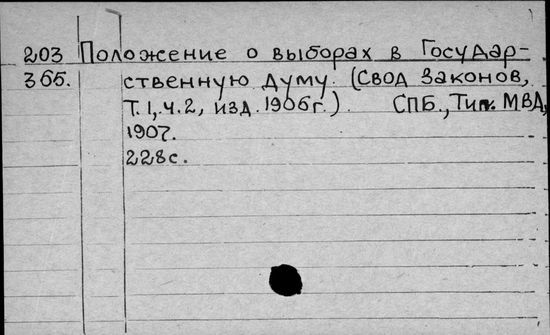 203 Положение о выборах в Государ-
365. ственную думу. (Свод Законов,
Т. 1, ч. 2, изд. 1906г.) СПБ., Тип. МВД,
1907.
228с.